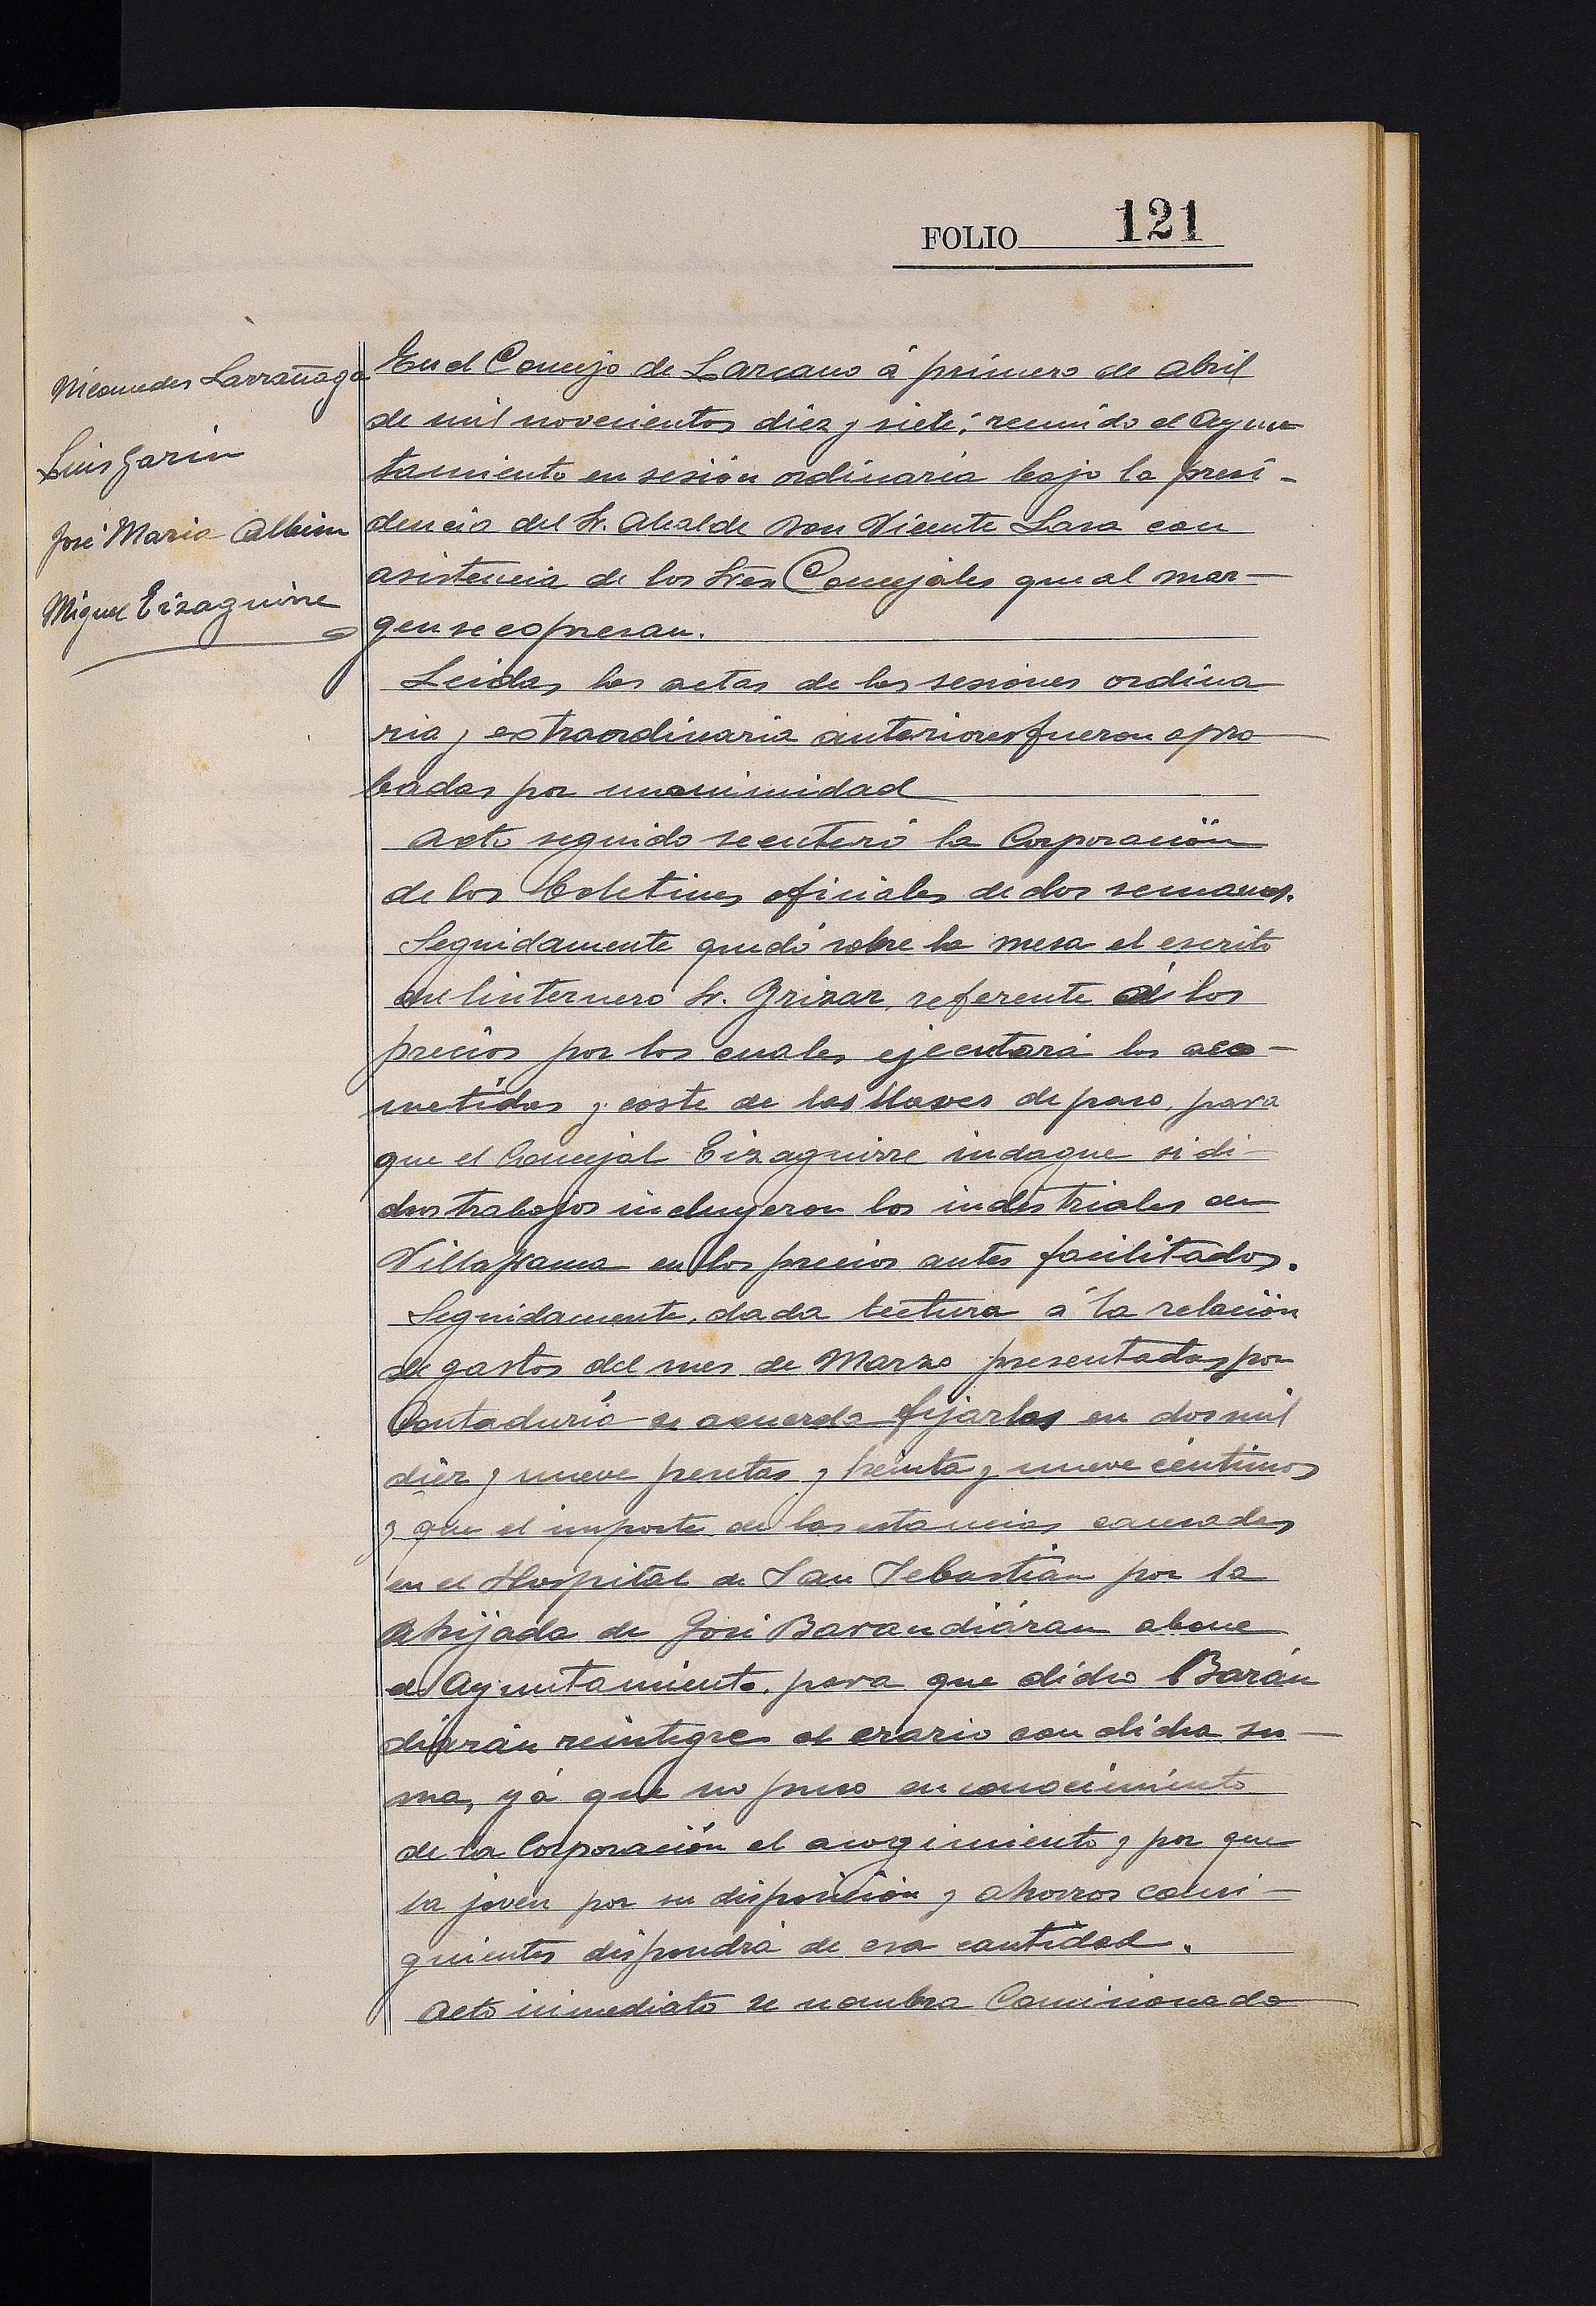 FOLIO 121
Nicomedes Larrañaga
Luis Garin
José Maria Albisu
Miguel Eizaguirre
En el Concejo de Lazcano á primero de Abril
de mil novecientos diez y siete; reunido el Ayun
tamiento en sesión ordinaria bajo la presi-
dencia del Sr. Alcalde Don Vicente Lasa con
asistencia de los Sres Concejales que al mar-
gen se expresan.
Leidas las actas de las sesiones ordina
ria y extraordinaria anteriores fueron apro
badas por unanimidad
Acto seguido se enteró la Corporación
de los Boletines oficiales de dos semanas.
Seguidamente quedó sobre la mesa el escrito
del linternero Sr. Grizar, referente á los
precios por los cuales ejecutará las aco-
metidas y coste de las llaves de paso, para
que el Concejal Eizaguirre indague si di-
chos trabajos incluyeron los industriales de
Villafranca en los precios antes facilitados.
Seguidamente, dada lectura á la relación
de gastos del mes de Marzo presentadas por
Contaduría se acuerda fijarlas en dos mil
diez y nueve pesetas y treinta y nueve céntimos
y que el importe de las estancias causadas
en el Hospital de San Sebastián por la
ahijada de José Barandiáran abone
el Ayuntamiento, para que dicho Barán
diarán reintegre al erario con dicha su-
ma, yá que no puso en conocimiento
de la Corporación el acogimiento y por que
la joven por su disposición y ahorros consi-
guientes dispondrá de esa cantidad.
Acto inmediato se nombra Comisionado